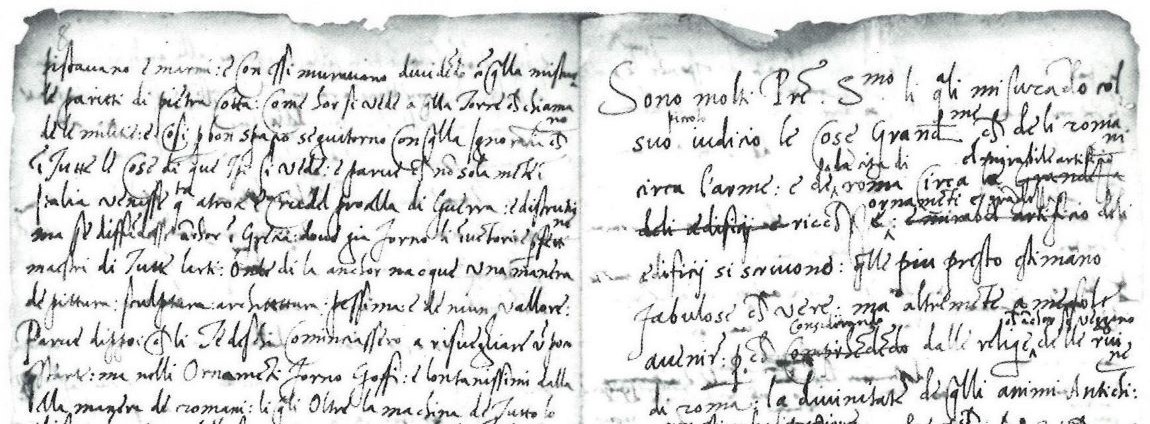 pistavano e marmi: e con essi muravano dividēdo cō q̄lla mistura
le pariete di pietra cotta: come hor si vede a q̄lla Torre ch̄ chiamano
de le militie: e cosi p bon spatio seguitorno con q̄lla ignorantia ch̄
ī tutte le cose di que tp̄i si vede: e parve ch̄ nō solamēte ī
Italia venisse q̄sta atroce e crudel procella di Guerra: e distrutione
ma se diffondesse anchor ī Grecia: dove già forno li inventori e pfetti
maestri di tutte larti: Onde di la anchor nacque una manera
de pittura: sculptura: architettura: pessima: e de niun vallore:
Parve dippoi: ch̄ li Tedeschi cominciassero a risvegliare ū poco
ma nelli Ornamēti forno Goffi: e lontanissimi dalla
bella manera de romani: li q̄li Oltre la machina de tutto lo
Sono molti Pr̄e Smo li q̄li misurādo col
suo piccolo iudicio le cose Grandme ch̄ deli romani
circa l'arme: e de la cita di roma circa el mirabile artificio
e ricch ornamēti e: deli
edificij si scrivono: q̄lle piu presto estimano
fabulose ch̄ vere: ma altremēte a me sole
avenir: p̄ch̄ considerando dalle reliq̄e ch̄ anchor si veggono delle ruine
di roma: la divinitate de q̄lli animi Antichi: